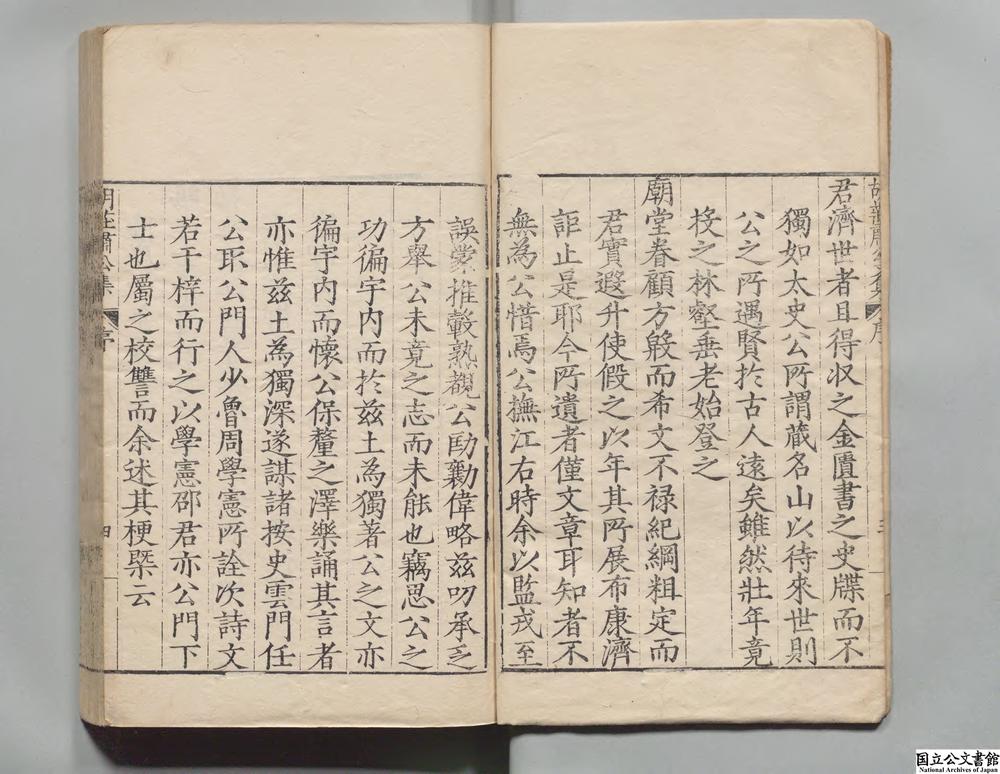 君濟世者且得收之金匱書之史牒而不
獨如太史公所謂藏名山以待來世則
公之所遇賢於古人遠矣雖然壯年竟
投之林壑垂老始登之
廟堂眷顧方殷而希文不祿紀綱粗定而
君實遐升使假之以年其所展布康濟
詎止是耶今所遺者僅文章耳知者不
無為公惜焉公撫江右時余以監戎至
誤蒙推轂熟覩公勛勤偉略茲叨承乏
方舉公未竟之志而未能也竊思公之
功徧宇內而於茲土為獨著公之文亦
徧宇內而懷公保釐之澤樂誦其言者
亦惟茲土為獨深遂謀諸按史雲門任
公取公門人少魯周學憲所詮次詩文
若干梓而行之以學憲邵君亦公門下
士也屬之校讐而余述其梗槩云
胡莊肅公集
序
四
国立公文書館
National Archives of Japan